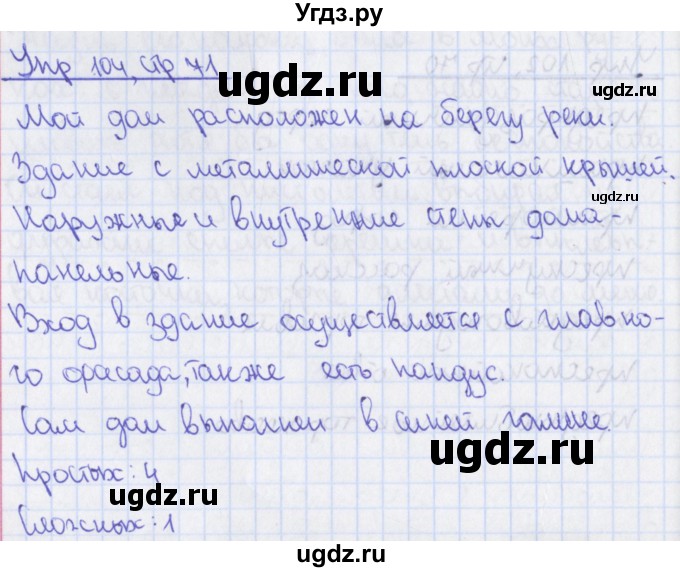 Угдз.ру
Упр 104, стр 71
ugdz.ru
ugdz.ru
Мой дом расположен на берегу реки.
ugdz.ru
Здание с металлической плоской крышей.
Наружные и внутренние стены дома-
панельные.
ugdz.ru
Вход в здание осуществляется с главно-
го фасада, также есть пандус.
Сам дом выполнен в синей гамме.
ugdz.ru
ugdz.ru
Простых: 4
Сложных: 1
ugdz.ru